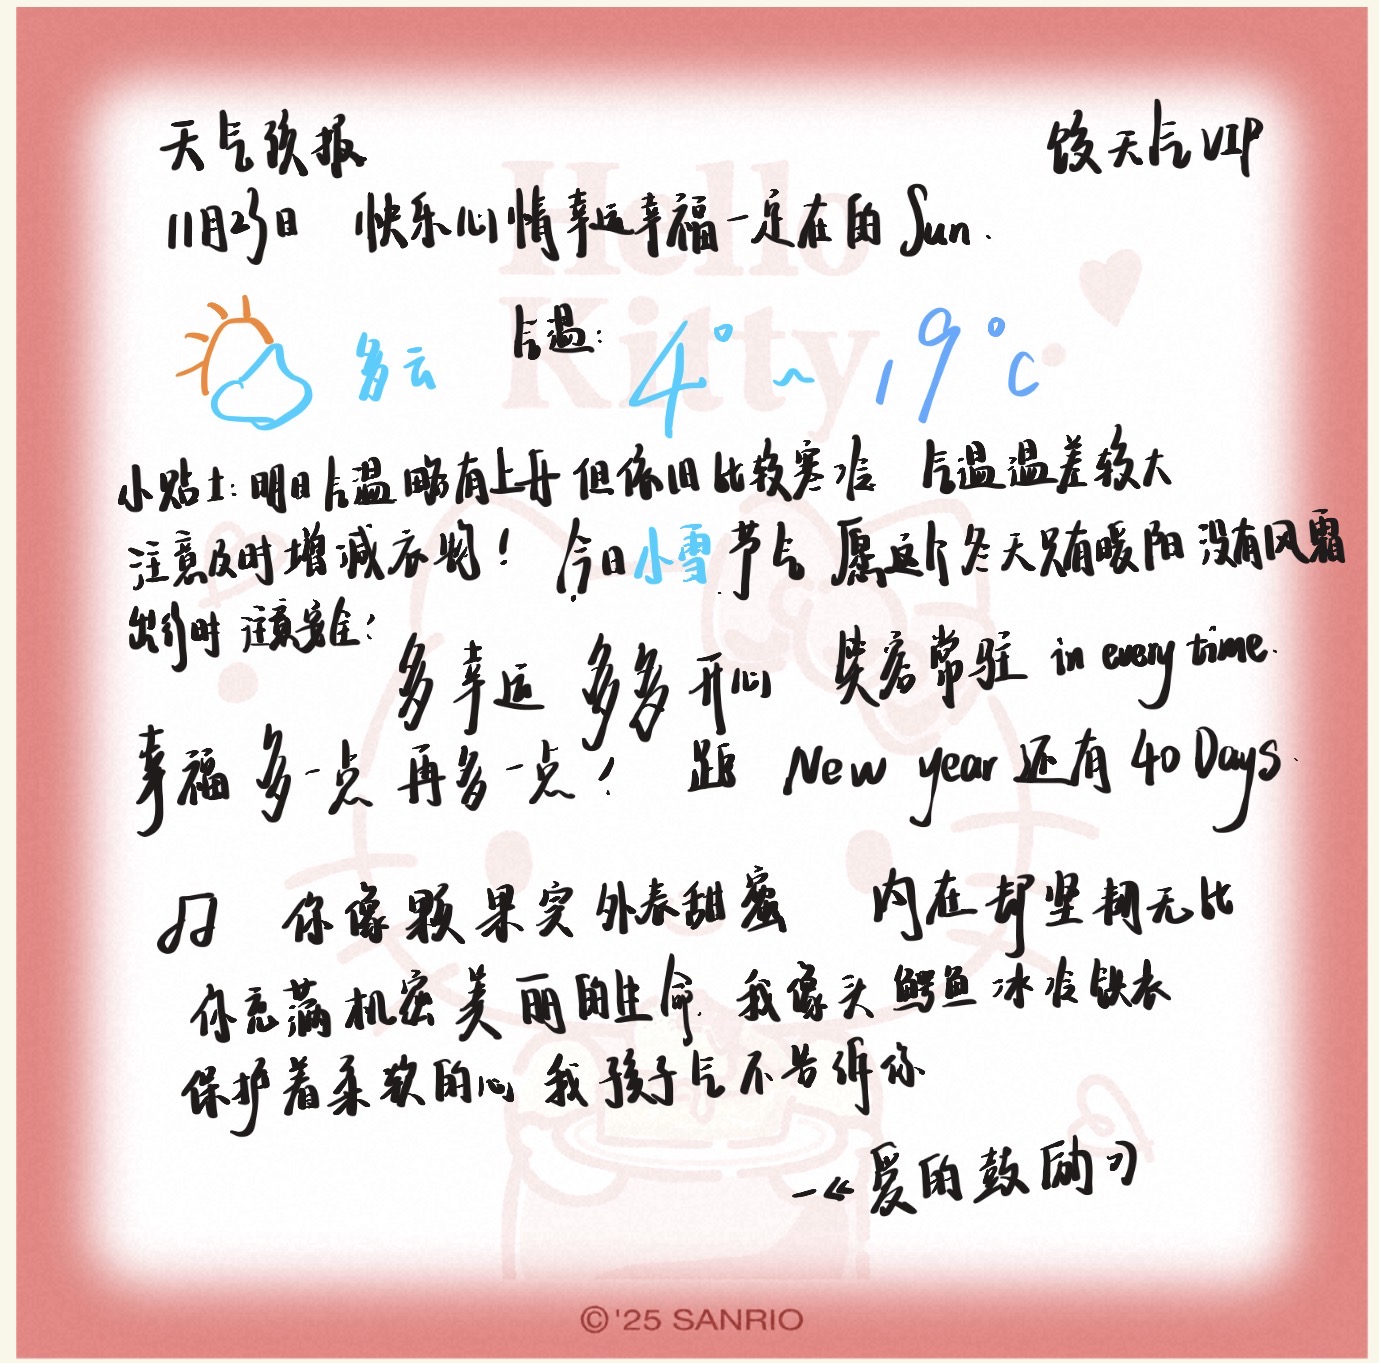 天气预报 饺天气VIP
11月23日 快乐心情幸运幸福一定在的 Sun.
Hello
Kitty
多云 气温: 4°~19°C
小贴士: 明日气温略有上升 但依旧比较寒冷 气温温差较大
注意及时增减衣物! 今日小雪节气 愿这个冬天只有暖阳 没有风霜
出行时 注意安全!
多幸运 多多开心 笑容常驻 in every time.
幸福多一点 再多一点! 距 New year 还有 40 Days.
你像颗果实外表甜蜜 内在却坚韧无比
你充满机密美丽的生命 我像头鳄鱼冰冷铁衣
保护着柔软的心 我孩子气不告诉你
—《爱的鼓励》
© '25 SANRIO